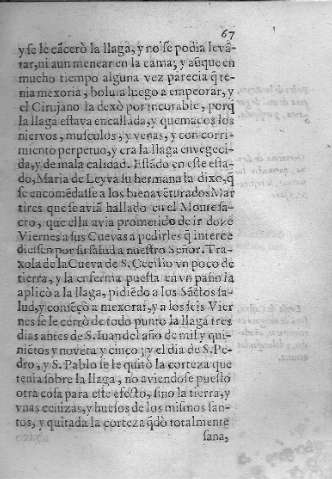 67
y se le cãcerò la llaga, y no se podia levã-
tar, ni aun menear en la cama; y aũque en
mucho tiempo alguna vez parecia q̃ te-
nia mexoria, bolvia luego a empeorar, y
el Cirujano la dexò por incurable, porq̃
la llaga estava encallada, y quemados los
niervos, musculos, y venas, y con corri-
miento perpetuo, y era la llaga envegeci-
da, y de mala calidad. Estãdo en este esta-
do, Maria de Leyva su hermana la dixo, q̃
se encomẽdasse a los bienavẽturados Mar
tires que se aviã hallado en el Monte sa-
cro, que ella avia prometido de ir doze
Viernes a sus Cuevas a pedirles q̃ interce
diessen por su salud a nuestro Señor. Tra-
xola de la Cueva de S. Cecilio vn poco de
tierra, y la enferma puesta en vn paño la
aplicò a la llaga, pidiẽdo a los Sãctos sa-
lud, y comẽçò a mexorar, y a los seis Vier
nes se le cerrò de todo punto la llaga tres
dias antes de S. Iuan del año de mil y qui-
niẽtos y noveta y cinco; y el dia de S. Pe-
dro, y S. Pablo se le quitò la corteza que
tenia sobre la llaga, no aviendose puesto
otra cosa para este efecto, sino la tierra, y
vnas cenizas, y huesos de los mismos san-
tos, y quitada la corteza q̃dò totalmente
sana,